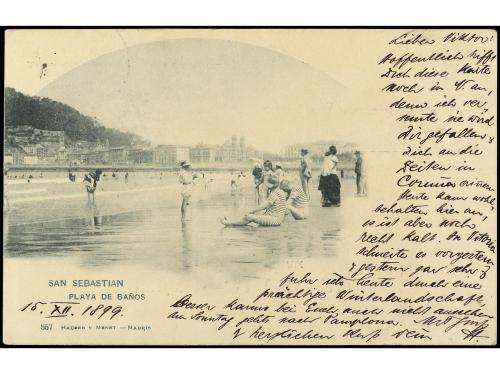 Lieber Viktor!
Hoffentlich trifft
Dich diese Karte
noch in V. an,
denn ich ver
mute sie wird
Dir gefallen &
Dich an die
Zeiten in
Coruna erinnern
Heute kam wohl
behalten hier an,
es ist aber noch
recht kalt. In Vitoria
schneite es vorgestern
& gestern gar sehr &
fuhr ich heute durch eine
prächtige Winterlandschaft,
Besser kanns bei Euch auch nicht aussehen
am Sonntag gehts nach Pamplona.
& herzlichen Dein
SAN SEBASTIAN
PLAYA DE BAÑOS
15. XII. 1899.
557 HAUSER Y MENET — MADRID